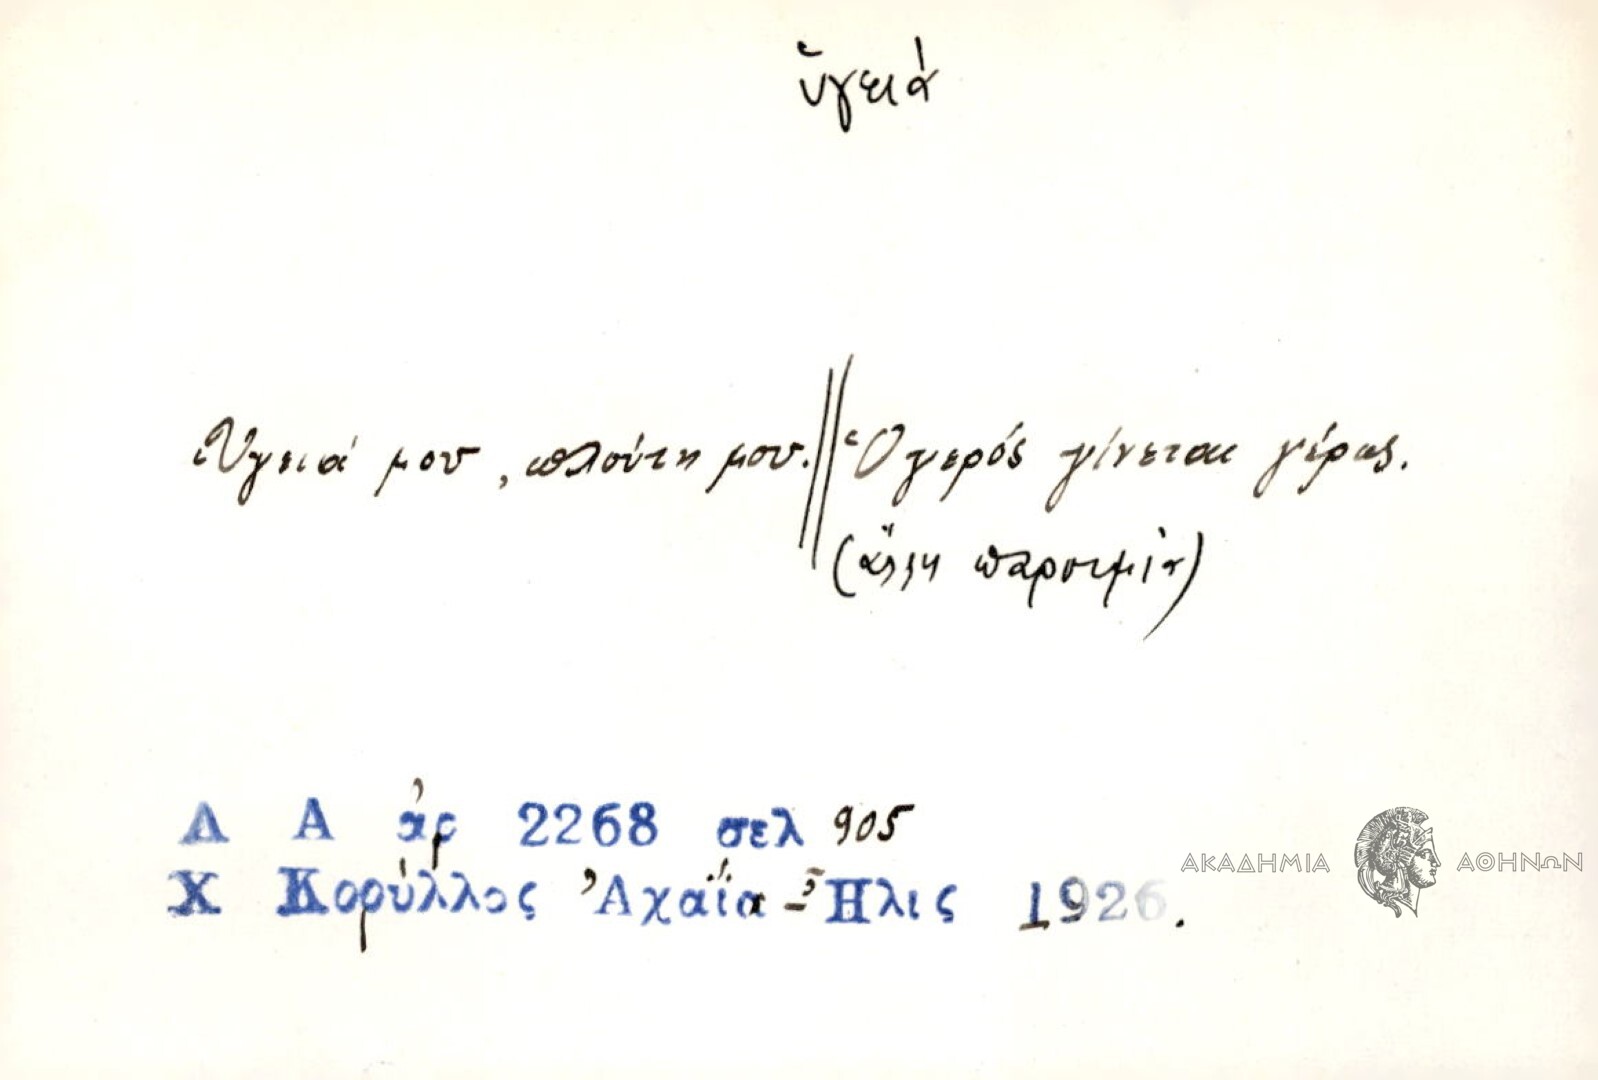 ὑγειά
Ὑγειά μου, πλούτη μου. || Ὁ γερός γίνεται γέρος.
(ἄλλη παροιμία)
Λ Α ἀρ 2268 σελ 905
Χ Κορύλλος Ἀχαΐα - Ἦλις 1926.
ΑΚΑΔΗΜΙΑ ΑΘΗΝΩΝ